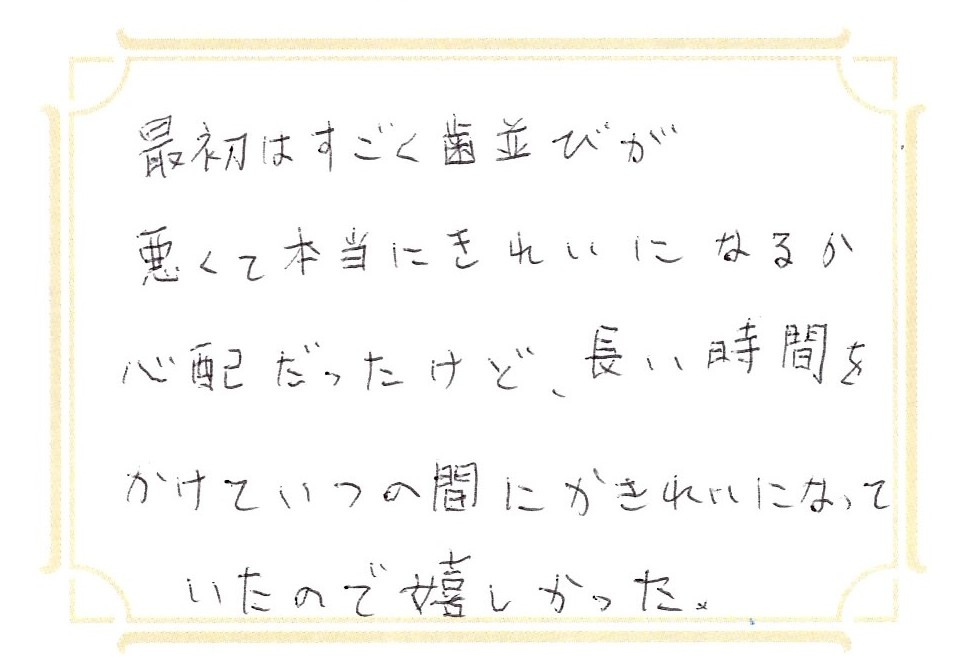 最初はすごく歯並びが
悪くて本当にきれいになるか
心配だったけど、長い時間を
かけていつの間にかきれいになって
いたので嬉しかった。